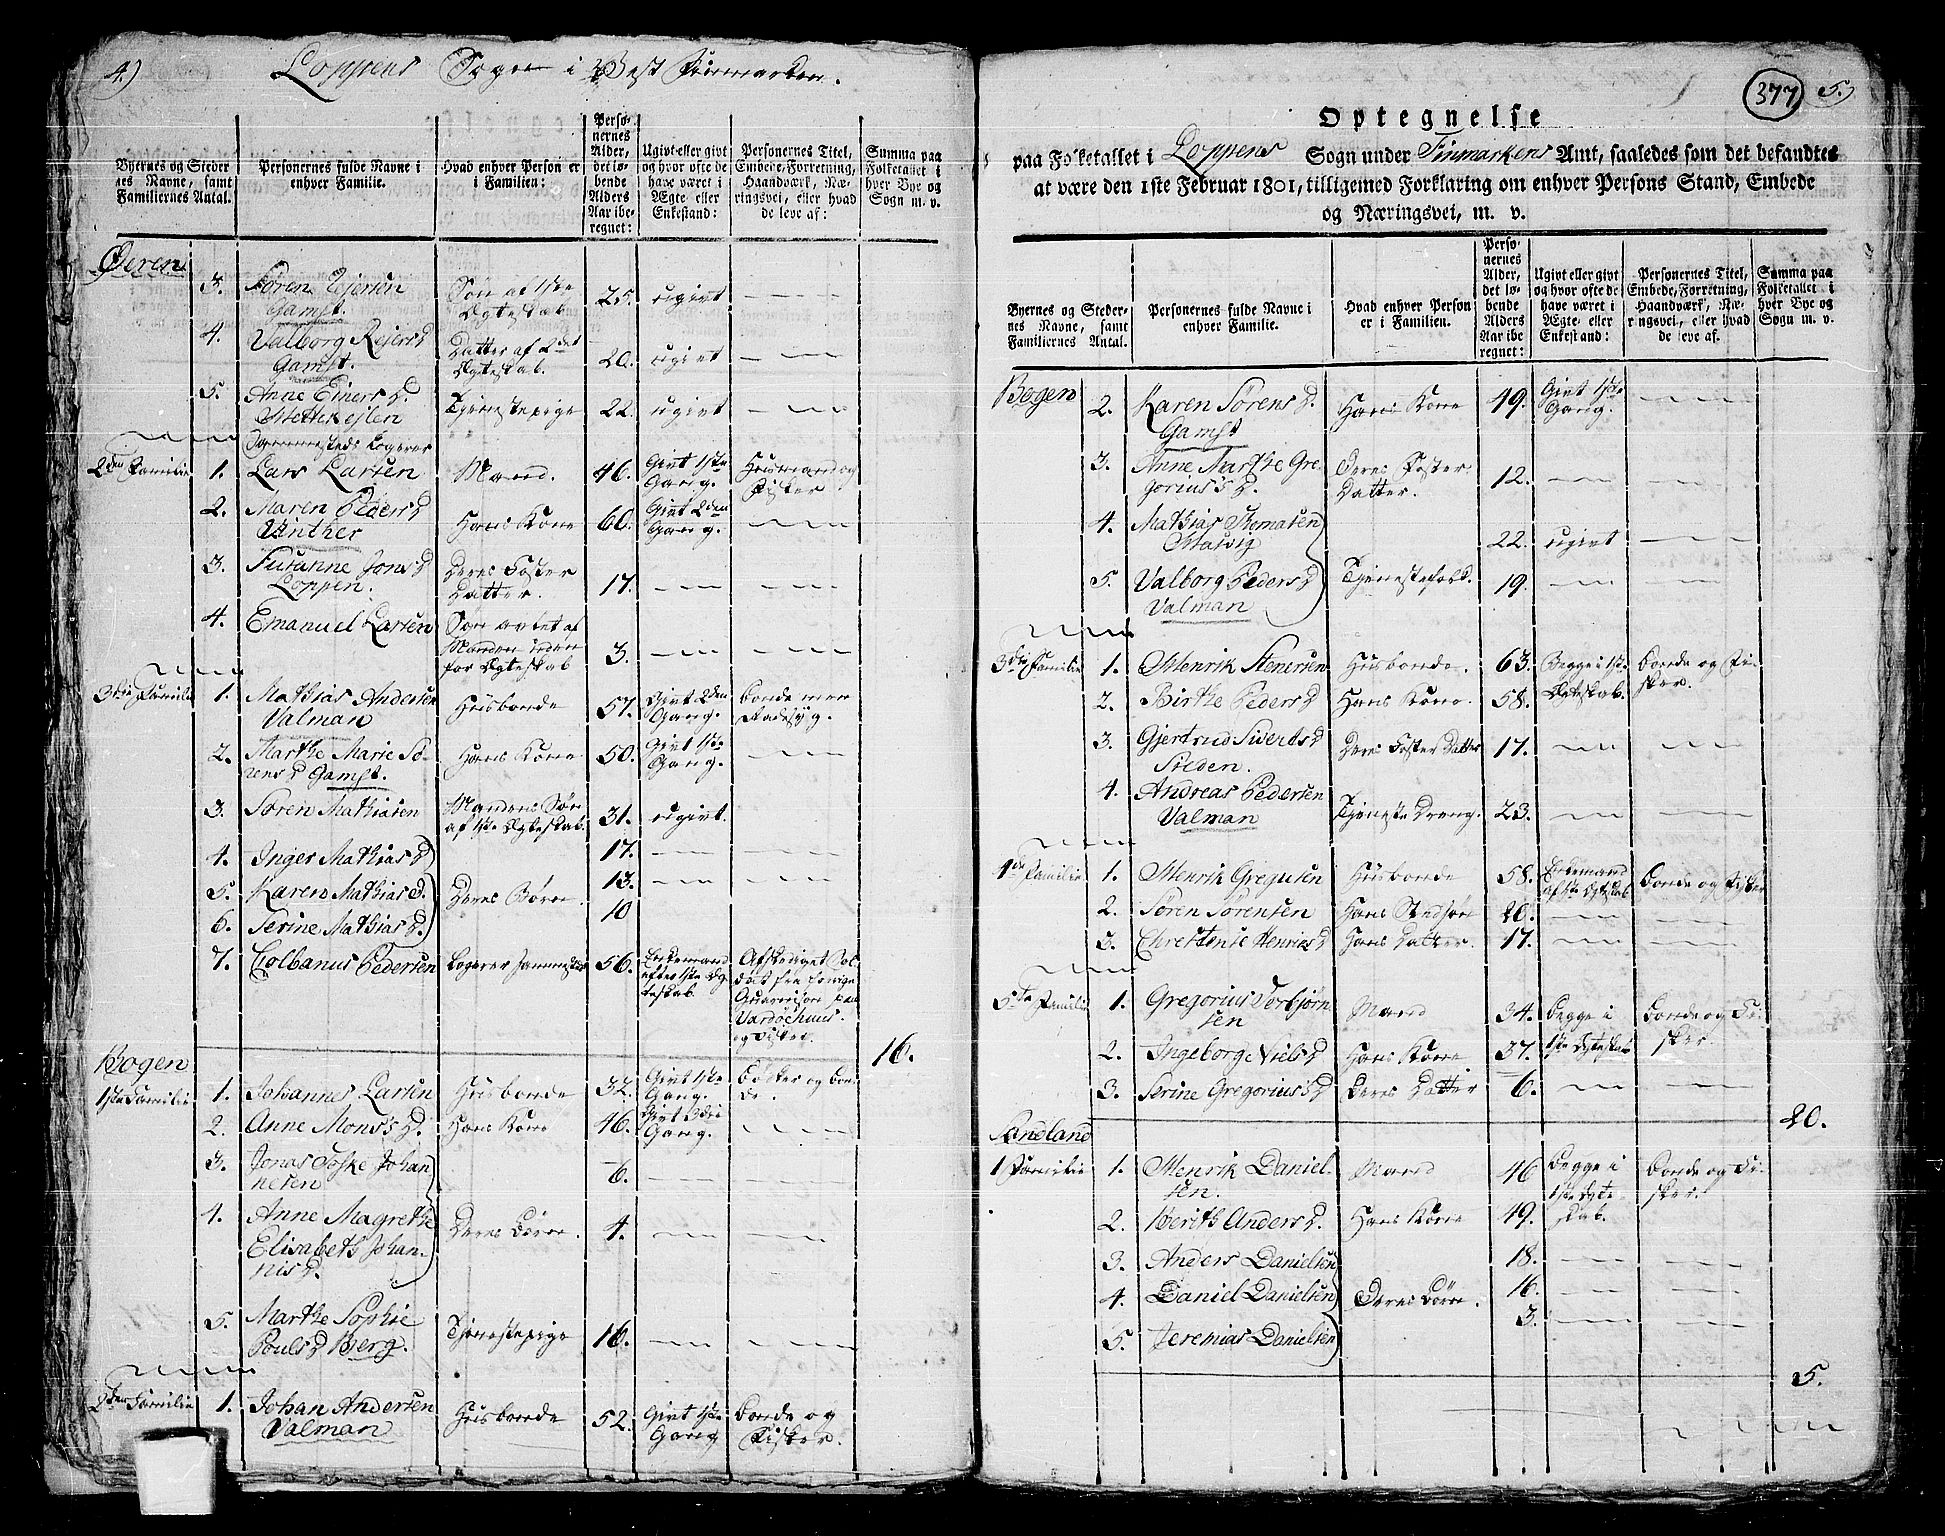 4.)
Loppens Sogn i Vest Finmarken.
Byernes og Steder
nes Navne, samt
Familiernes Antal.
Personernes fulde Navne i
enhver Familie.
Hvad enhver Person er
i Familien:
Perso-
nernes
Alder,
det lø-
bende
Alders
Aar ibe-
regnet:
Ugivt eller givt
og hvor ofte de
have været i
Ægte eller
Enkestand:
Personernes Titel,
Embede, Forretning,
Haandværk, Næ-
ringsvei, eller hvad
de leve af:
Summa paa
Folketallet i
hver Bye og
Sogn m. v.
Øeren
3. Søren Ejersen Søn af 1ste 25. ugivt
Gamst. Ægteskab
4. Valborg Rejers D Datter af 2det 20. ugivt
Gamst. Ægteskab.
5. Anne Einers D. Tjenestepige 22. ugivt
2den Familie 1. Lars Larsen Mand. 46. Givt 1ste Huusmand og
Gang. Fisker
2. Maren Peders D Hans Kone 60. Givt 2den
Vinther Gang.
3. Susanne Jons D Deres Foster 17.
Loppen. Datter.
4. Emanuel Larsen Søn avlet af
Manden uden 3.
for Ægteskab
3die Familie 1. Mathias Andersen Huusbonde 57. Givt 2den bonde
Valman Gang.
2. Marthe Marie Sø- Hans Kone 50. Givt 1ste
rens D Gamst. Gang.
3. Søren Mathiasen Mandens Søn 31. ugivt.
af 1ste Ægteskab.
4. Inger Mathias D 17.
5. Karen Mathias D. Deres Børn. 13.
6. Serine Mathias D. 10
7. Colbanus Pedersen Logerer sammesteds 56. Enkemand Afskediget Sol-
efter 1ste Æg- dat fra
teskab. Guarnison paa
Vardøehuus.
og Fisker.
16.
Bogen
1ste Familie 1. Johannes Larsen Huusbonde 32. Givt 1ste Bødker og bon-
Gang. de.
2. Anne Mons's D. Hans Kone 46. Givt 3die
Gang.
3. Jonas Foske Johan 6.
nesen
4. Anne Magrethe Deres Børn. 4.
Elisabeth Johan-
nis D.
5. Marthe Sophie Tjenestepige 16.
Pouls D Berg.
2den Familie 1. Johan Andersen Huusbonde 52. Givt 1ste bonde og
Valman Gang Fisker.
377 5.)
Optegnelse
paa Folketallet i Loppens Sogn under Finmarkens Amt, saaledes som det befandtes
at være den 1ste Februar 1801, tilligemed Forklaring om enhver Persons Stand, Embede
og Næringsvei, m. v.
Byernes og Steder-
nes Navne, samt
Familiernes Antal.
Personernes fulde Navne i
enhver Familie.
Hvad enhver Person
er i Familien.
Perso-
nernes
Alder,
det lø-
bende
Alders
Aar ibe-
regnet:
Ugivt eller givt
og hvor ofte de
have været i
Ægte eller
Enkestand:
Personernes Titel,
Embede, Forretning,
Haandværk, Næ-
ringsvei, eller hvad
de leve af.
Summa paa
Folketallet i
hver Bye og
Sogn m. v.
Bogen 2. Karen Sørens D. Hans Kone 49. Givt 1ste
Gamst Gang.
3. Anne Marthe Gre- Deres Foster 12.
gorius's D. Datter.
4. Mathias Thomasen 22. ugivt
5. Valborg Peders D Tjenestefolk. 19.
Valman
3die Familie 1. Henrik Stenersen Huusbonde. 63. Begge i 1ste bonde og Fi-
2. Birthe Peders D Hans Kone. 58. Ægteskab. sker.
3. Gjertrud Siverts D Deres Foster Datter 17.
4. Andreas Pedersen
Valman Tjeneste Dreng. 23.
4de Familie 1. Henrik Gregusen Huusbonde 58. Enkemand bonde og Fisker
af 1ste Ægteskab
2. Søren Sørensen Hans Stedsøn 20.
3. Christense Henrics D Hans Datter. 17.
5te Familie 1. Gregorius Torbjørn Mand 34. Begge i bonde og Fi-
sen 1ste Ægteskab sker.
2. Ingeborg Niels D Hans Kone 37.
3. Serine Gregorius's D Deres Datter 6.
20.
Sandland
1 Familie 1. Henrik Daniel- Mand 46 Begge i bonde og Fi-
sen. 1ste Ægte sker.
2. Berith Anders D. Hans Kone 49. skab.
3. Anders Danielsen 18.
4. Daniel Danielsen Deres Børn. 16.
5. Jeremias Danielsen 3.
5.